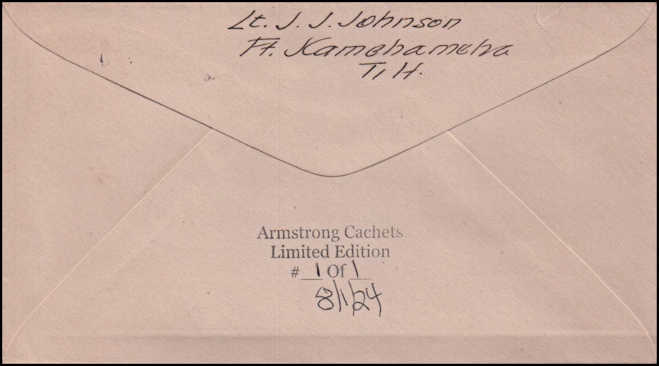 Lt. J. J. Johnson
Ft. Kamehameha
T. H.
Armstrong Cachets
Limited Edition
# 1 Of 1
8/1/24